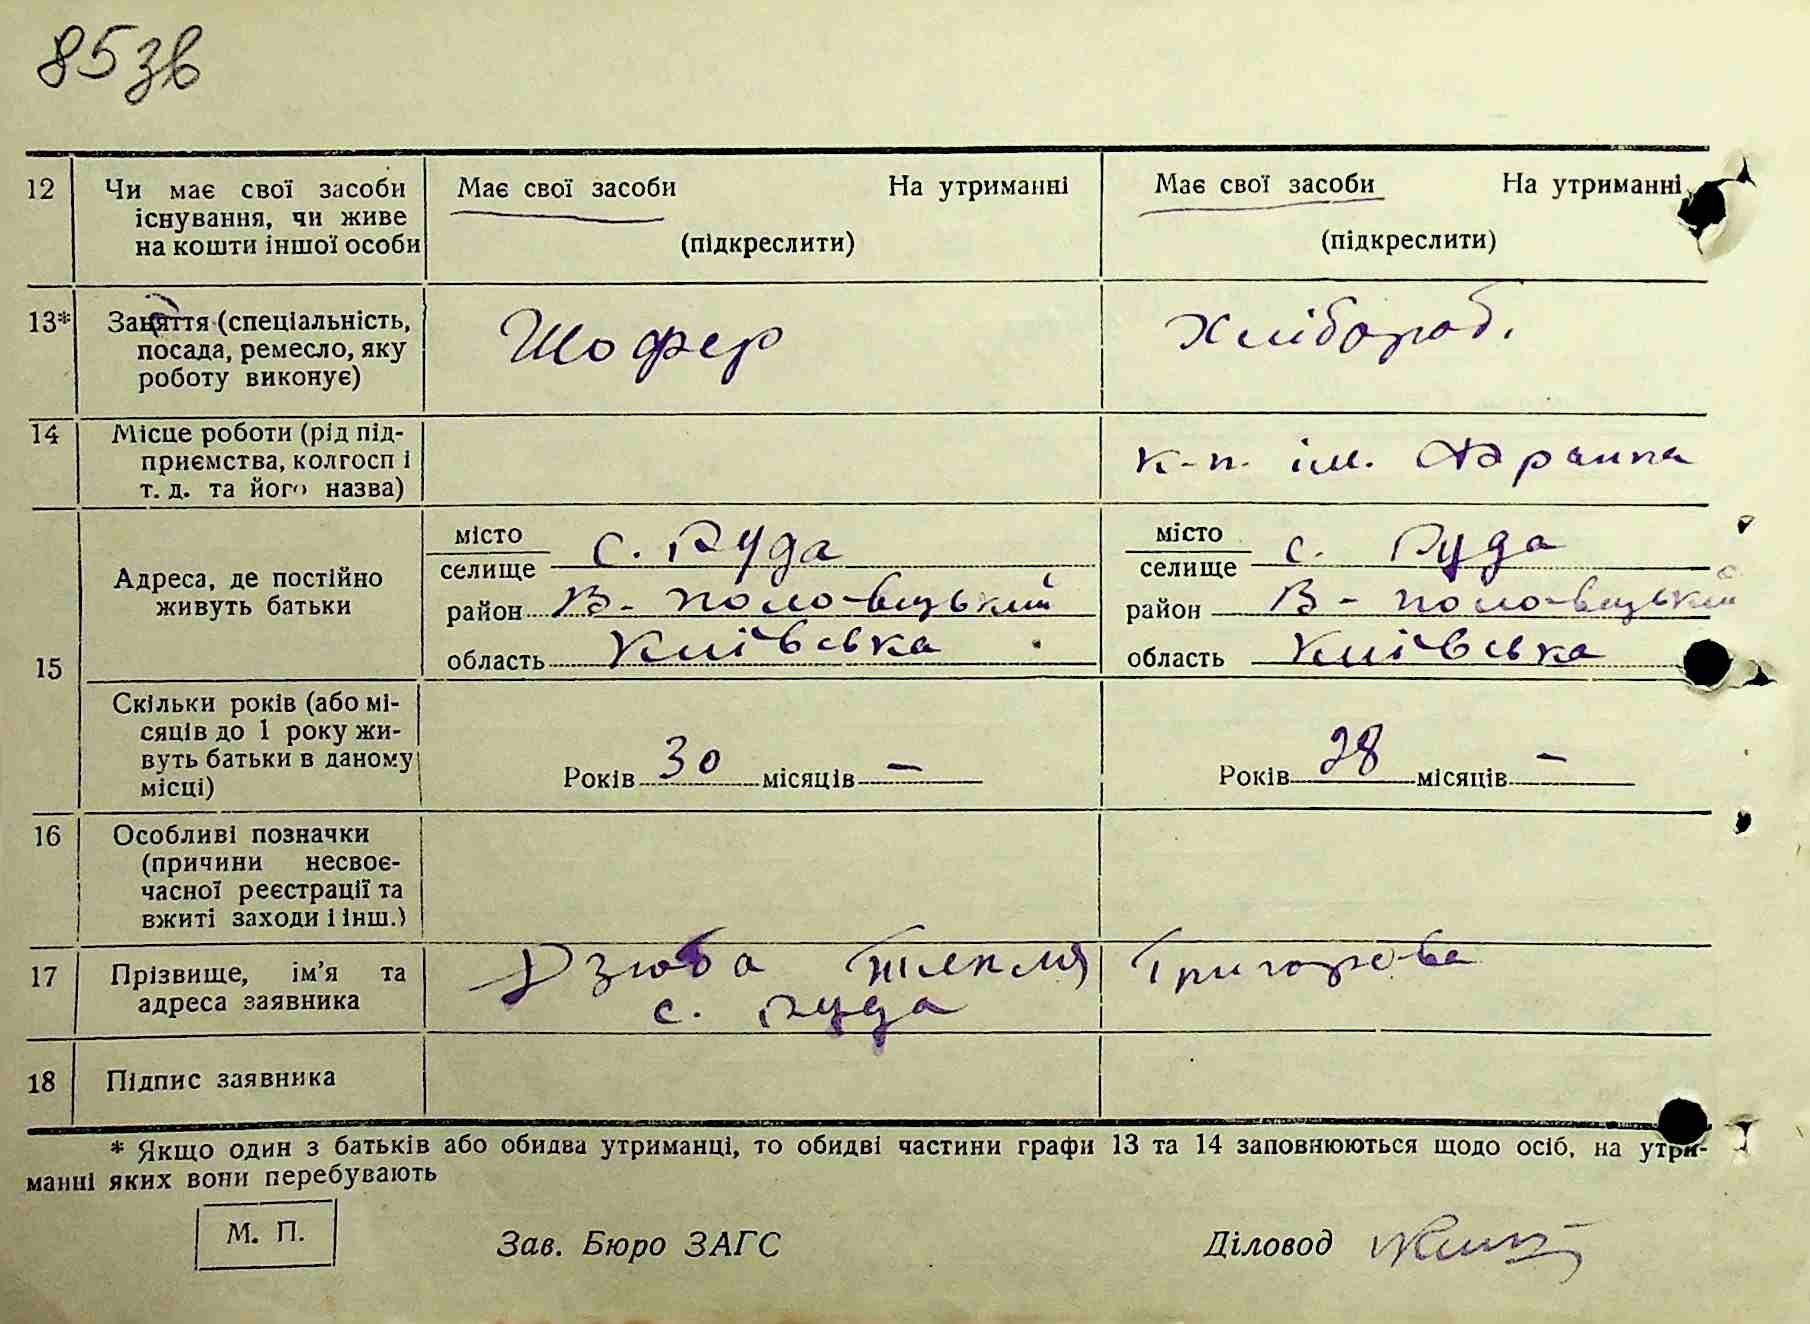 85 зв
12 Чи має свої засоби існування, чи живе на кошти іншої особи
Має свої засоби На утриманні
(підкреслити)
Має свої засоби На утриманні
(підкреслити)
13* Заняття (спеціальність, посада, ремесло, яку роботу виконує)
Шофер
Хлібороб.
14 Місце роботи (рід підприємства, колгосп і т. д. та його назва)
к-п. ім.
15 Адреса, де постійно живуть батьки
місто
селище с. Руда
район В-половецький
область Київська
місто
селище с. Руда
район В-половецький
область Київська
Скільки років (або місяців до 1 року живуть батьки в даному місці)
Років 30 місяців —
Років 28 місяців —
16 Особливі позначки (причини несвоєчасної реєстрації та вжиті заходи і інш.)
17 Прізвище, ім'я та адреса заявника
Дзюба Текля Григорова
с. Руда
18 Підпис заявника
* Якщо один з батьків або обидва утриманці, то обидві частини графи 13 та 14 заповнюються щодо осіб, на утри-
манні яких вони перебувають
М. П.
Зав. Бюро ЗАГС
Діловод